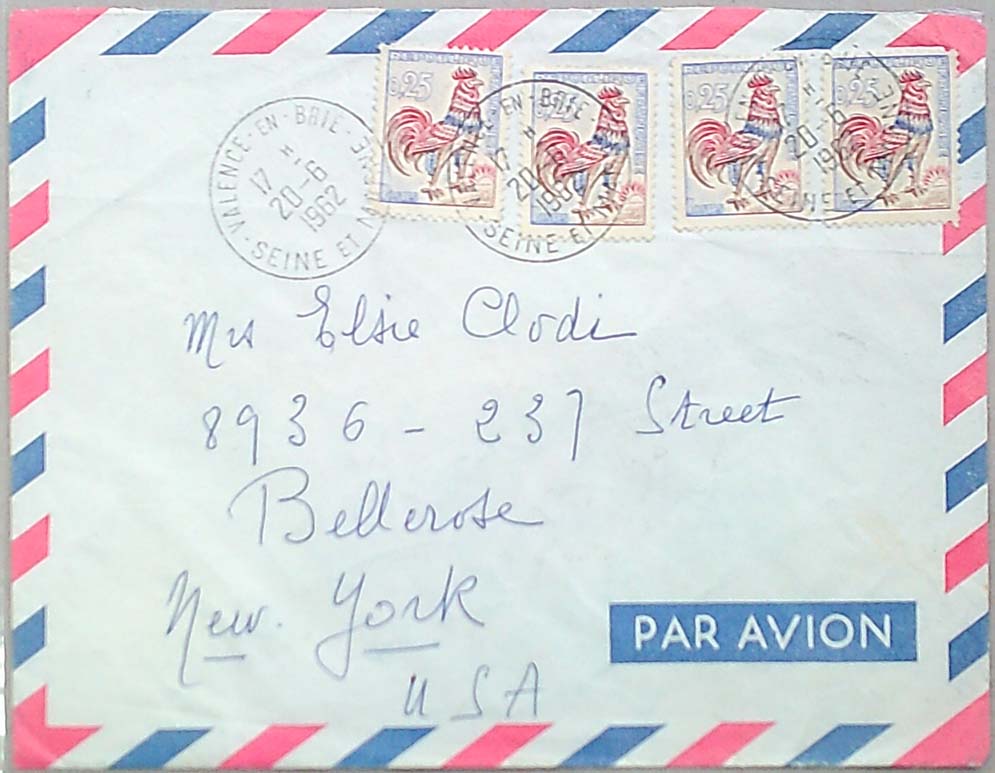 RÉPUBLIQUE
0,25
0,25
RÉPUBLIQUE
0,25
0,25
VALENCE-EN-BRIE
17 H
20-6
1962
SEINE ET M NE
EN-BRIE
17 H
20-6
1962
SEINE ET
H
20-6
196
SEINE ET
Mrs Elsie Clodi
8936 - 237 Street
Bellerose
New. York
USA
PAR AVION